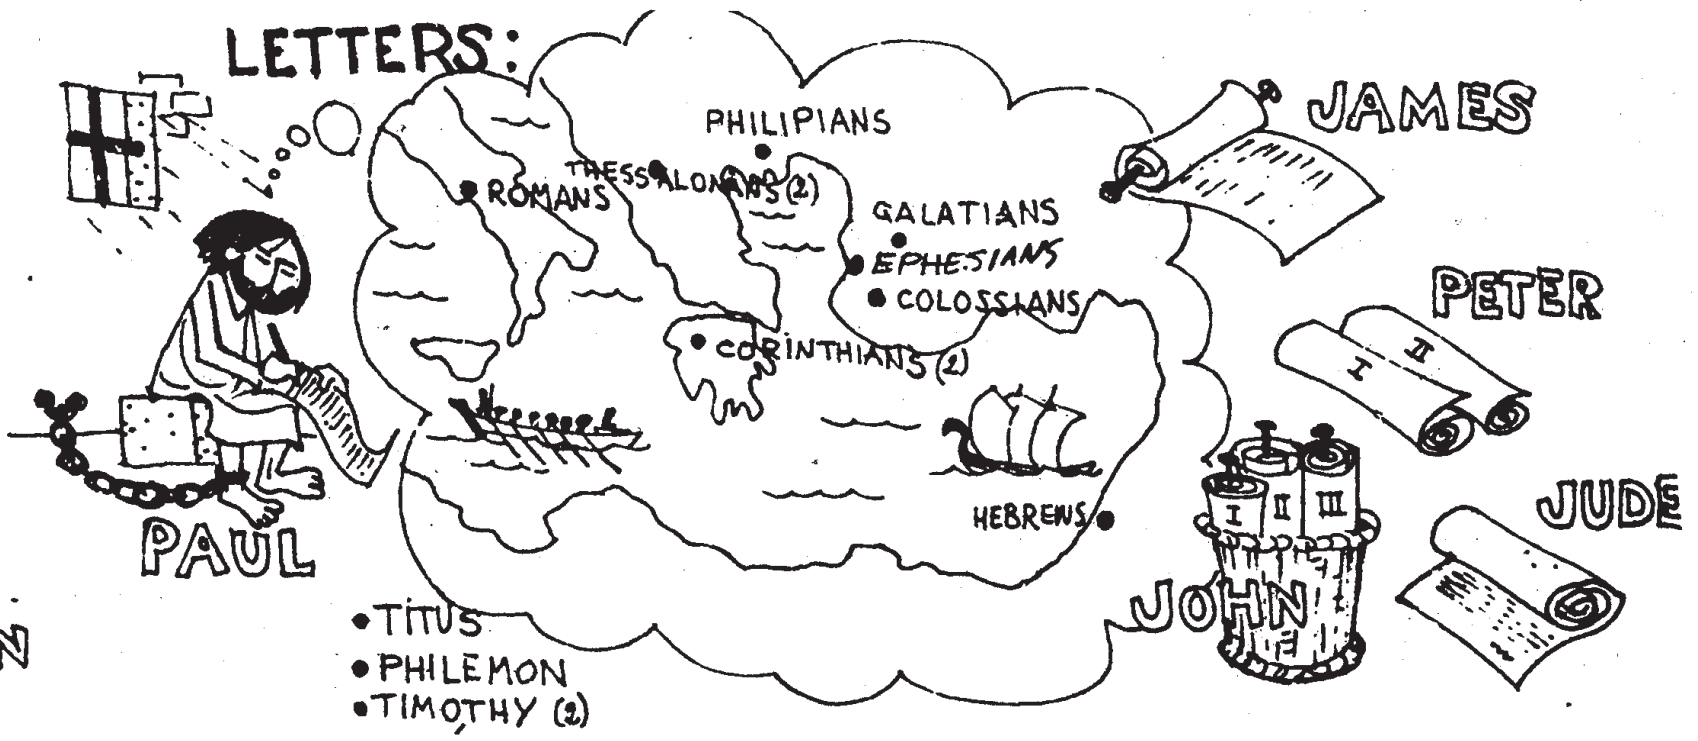 LETTERS:
PHILIPIANS
THESSALONIANS (2)
ROMANS
GALATIANS
EPHESIANS
COLOSSIANS
CORINTHIANS (2)
HEBRENS
PAUL
• TITUS
• PHILEMON
• TIMOTHY (2)
JAMES
PETER
I II
JUDE
I II III
JOHN
N